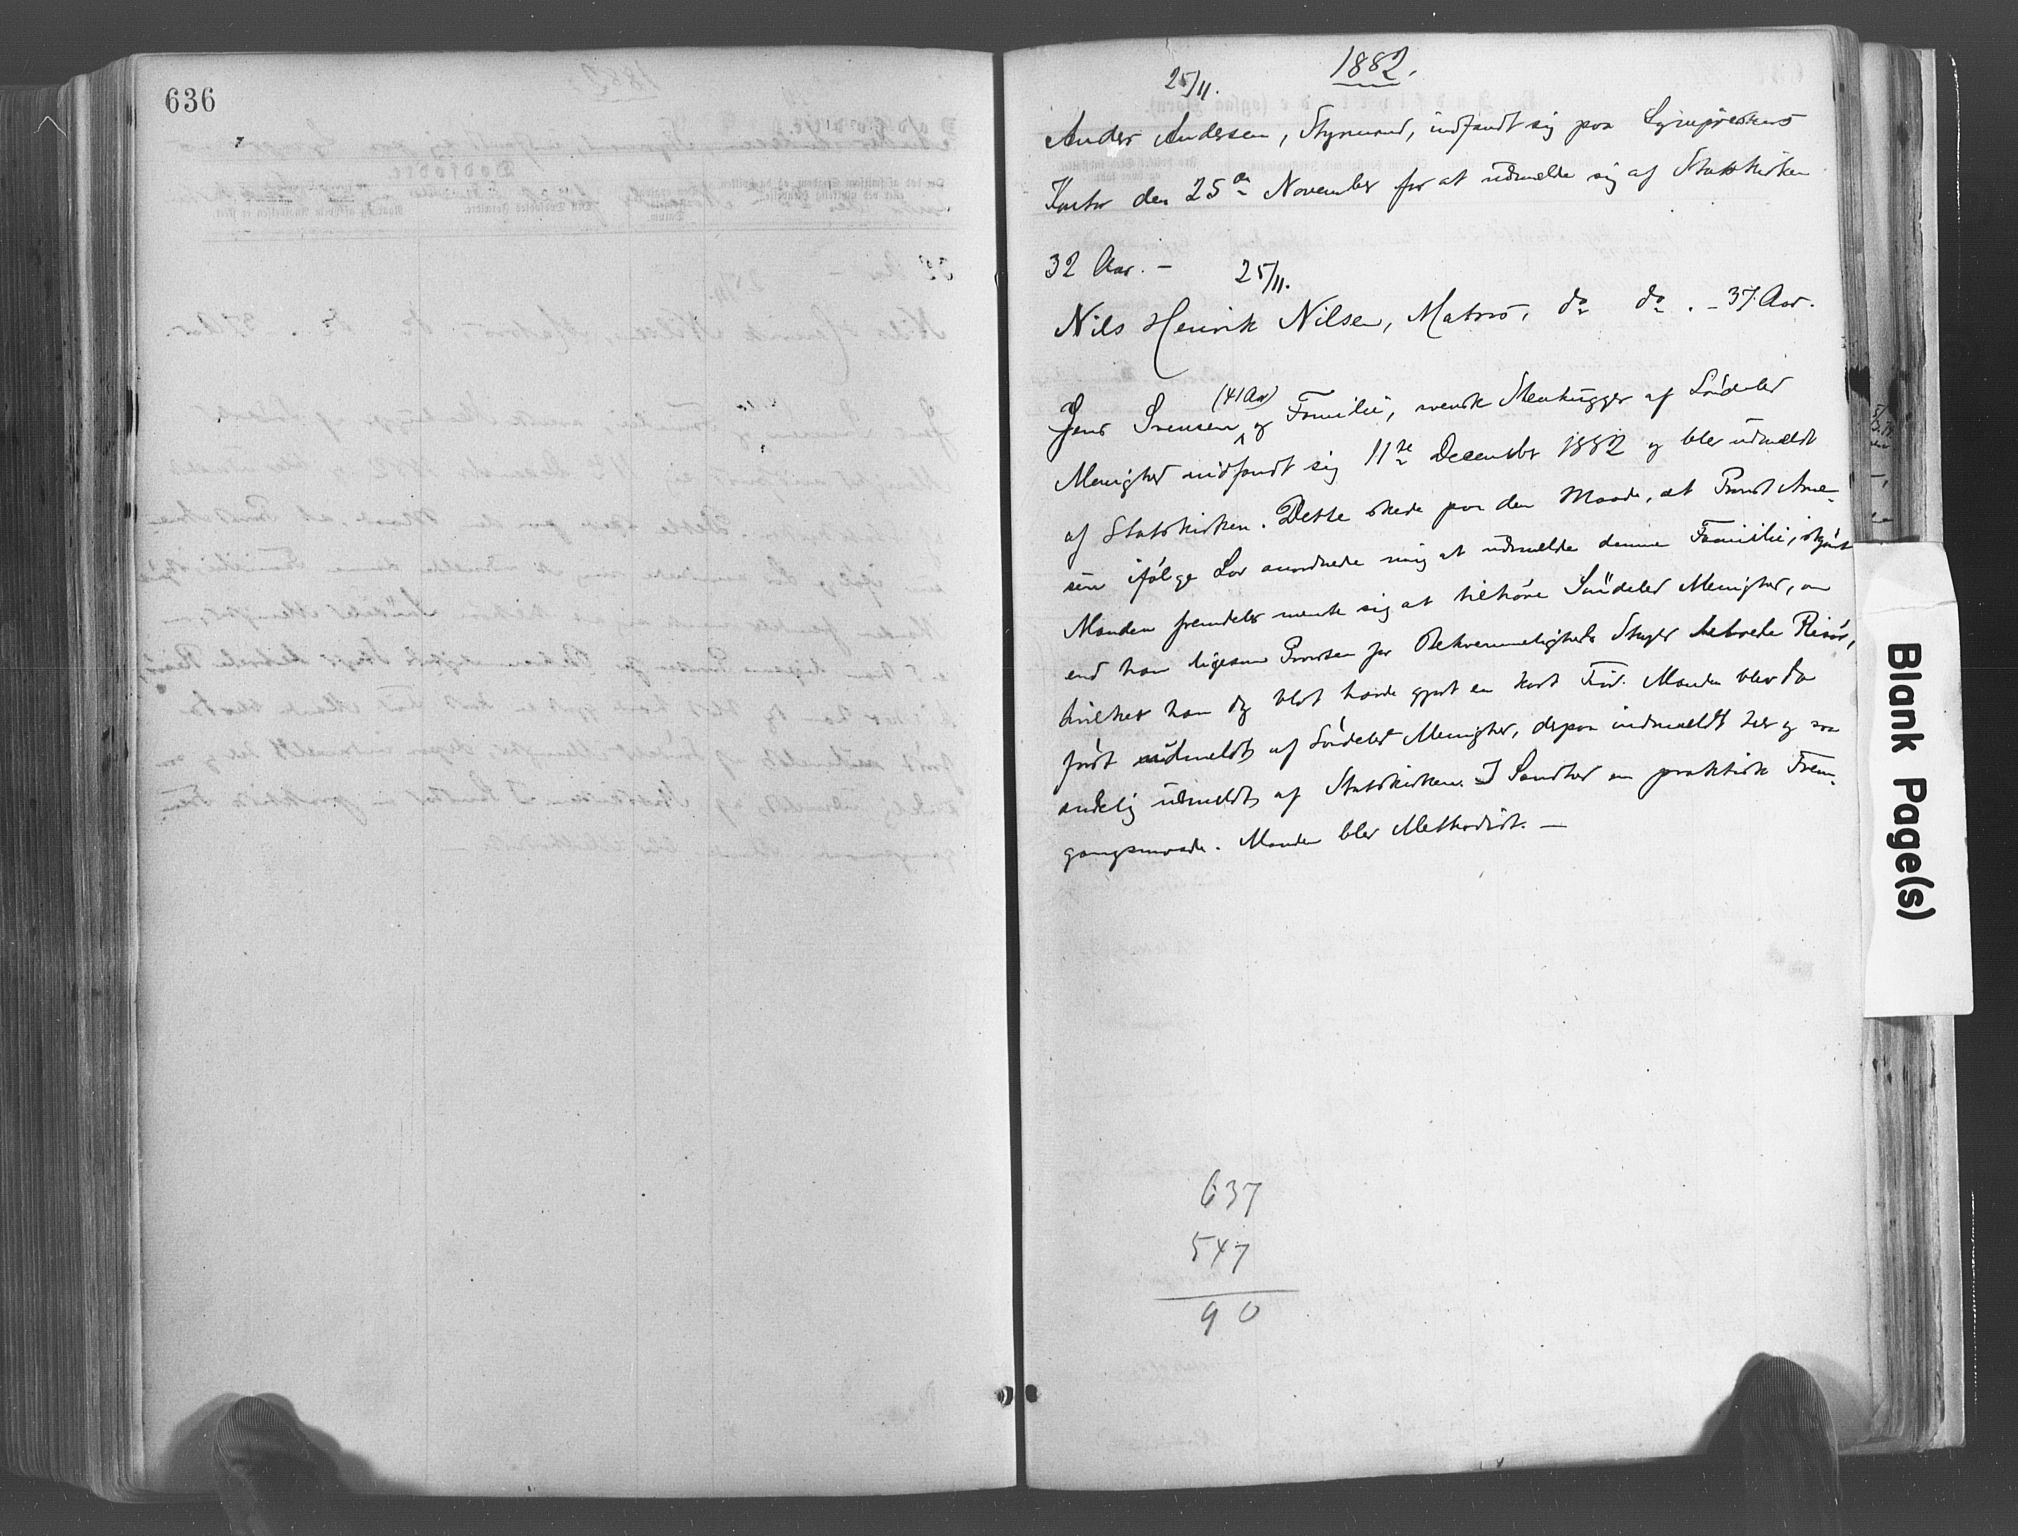 636
1882.
25/11.
Anders Andersen, Styrmand, indfandt sig paa Sognepræstens
Kontor den 25de November for at udmelde sig af Statskirken
32 Aar. –
25/11.
Nils Henrik Nilsen, Matros, do do. – 37 Aar.
(41 Aar)
Jens Svensen og Familie, svensk Stenhugger af Söndeled
Menighed indfandt sig 11te December 1882 og blev udmeldt
af Statskirken. Dette skede paa den Maade, at Provst Arne-
sen ifölge Lov anordnede mig at udmelde denne Familie, skjönt
Manden fremdeles mente sig at tilhöre Söndeled Menighed, om
end han ligesom Provsten for Bekvemmeligheds Skyld beboede Risör,
hvilket han dog blot havde gjort en kort Tid. Manden blev da
först udmeldt af Söndeled Menighed, derpaa indmeldt her og saa
endelig udmeldt af Statskirken. I Sandhed en praktisk Frem-
gangsmaade. Manden blev Methodist. –
637
547
90
Blank Page(s)